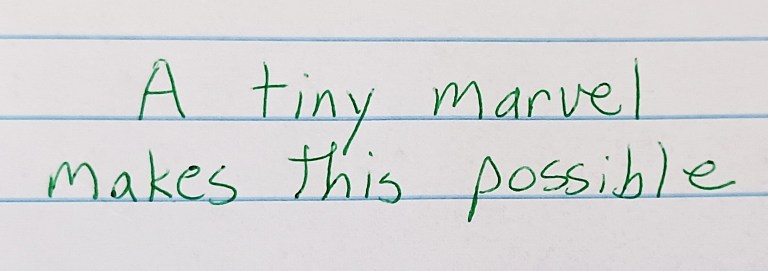 A tiny marvel
makes this possible